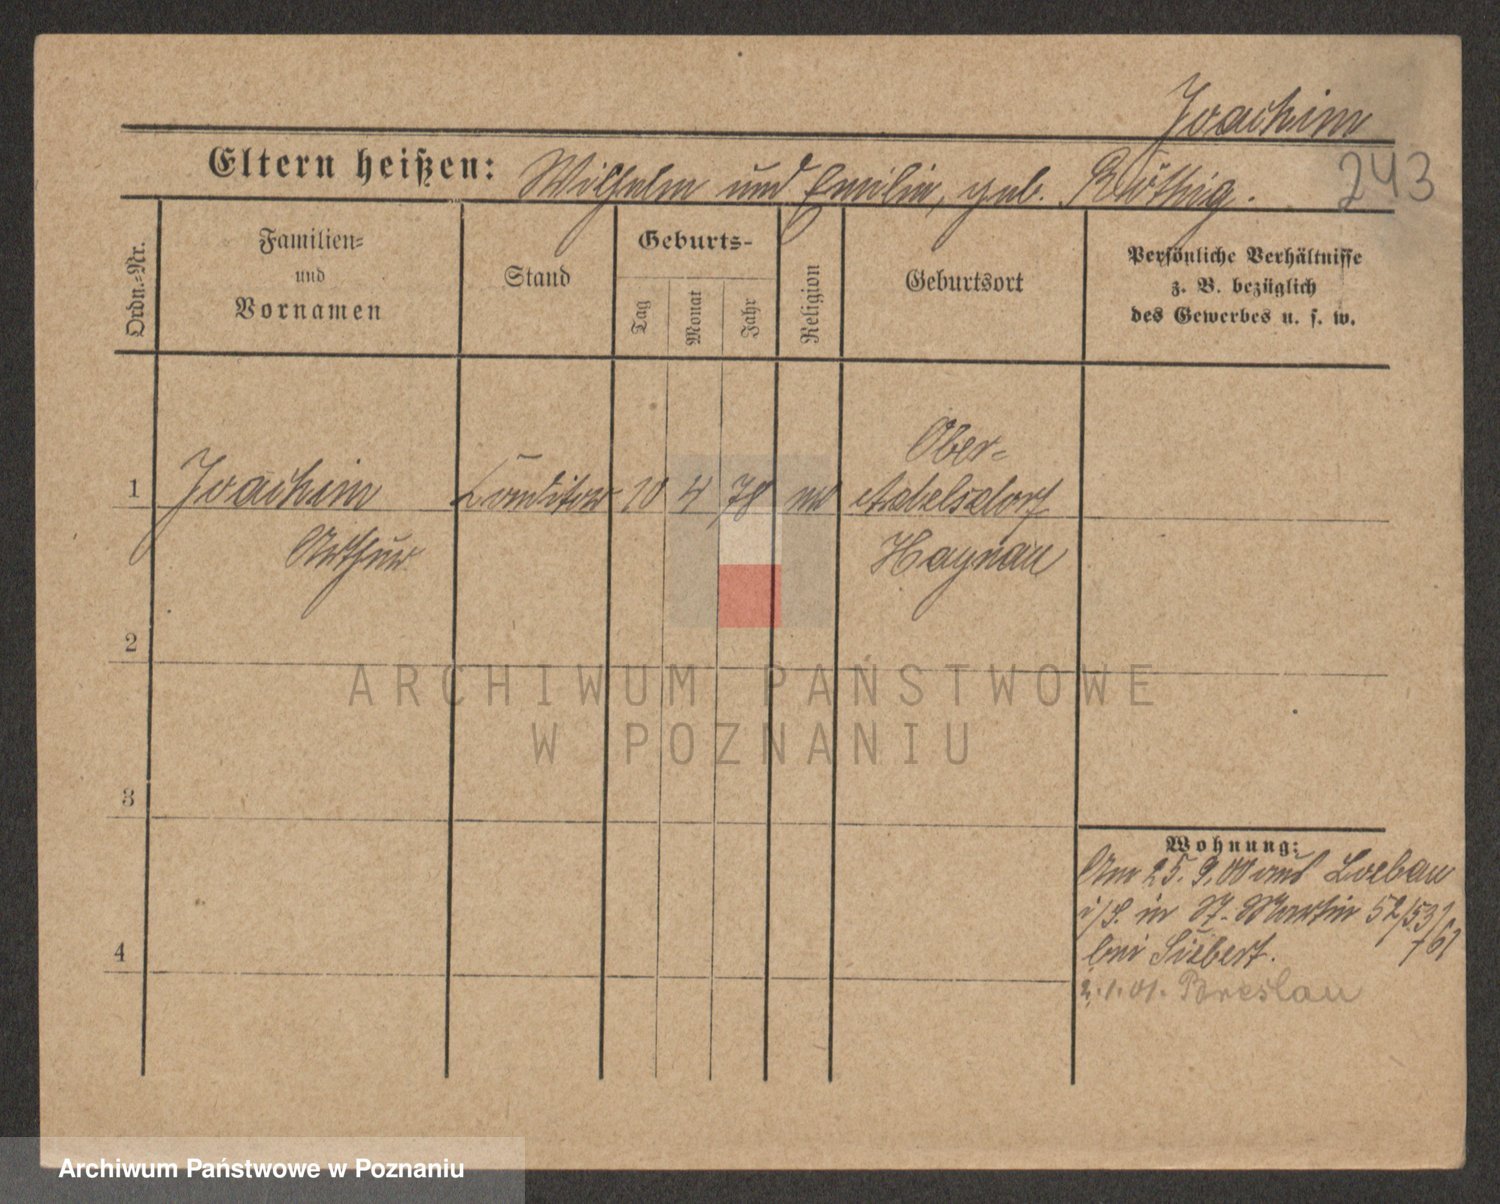 Joachim
243
Eltern heißen: Wilhelm und Emilie, geb. Röthig.
Ordn.-Nr.
Familien-
und
Vornamen
Stand
Geburts-
Tag
Monat
Jahr
Religion
Geburtsort
Persönliche Verhältnisse
z. B. bezüglich
des Gewerbes u. s. w.
Ober-
1 Joachim Conditor 10 4 78 Adelsdorf
Arthur Haynau
2
3
4
Wohnung:
Am 25. 9. 00 aus Loebau
i/S. in St. Martin 52/53
/61
bei Siebert.
2. 1. 01. Breslau
ARCHIWUM PAŃSTWOWE
W POZNANIU
Archiwum Państwowe w Poznaniu